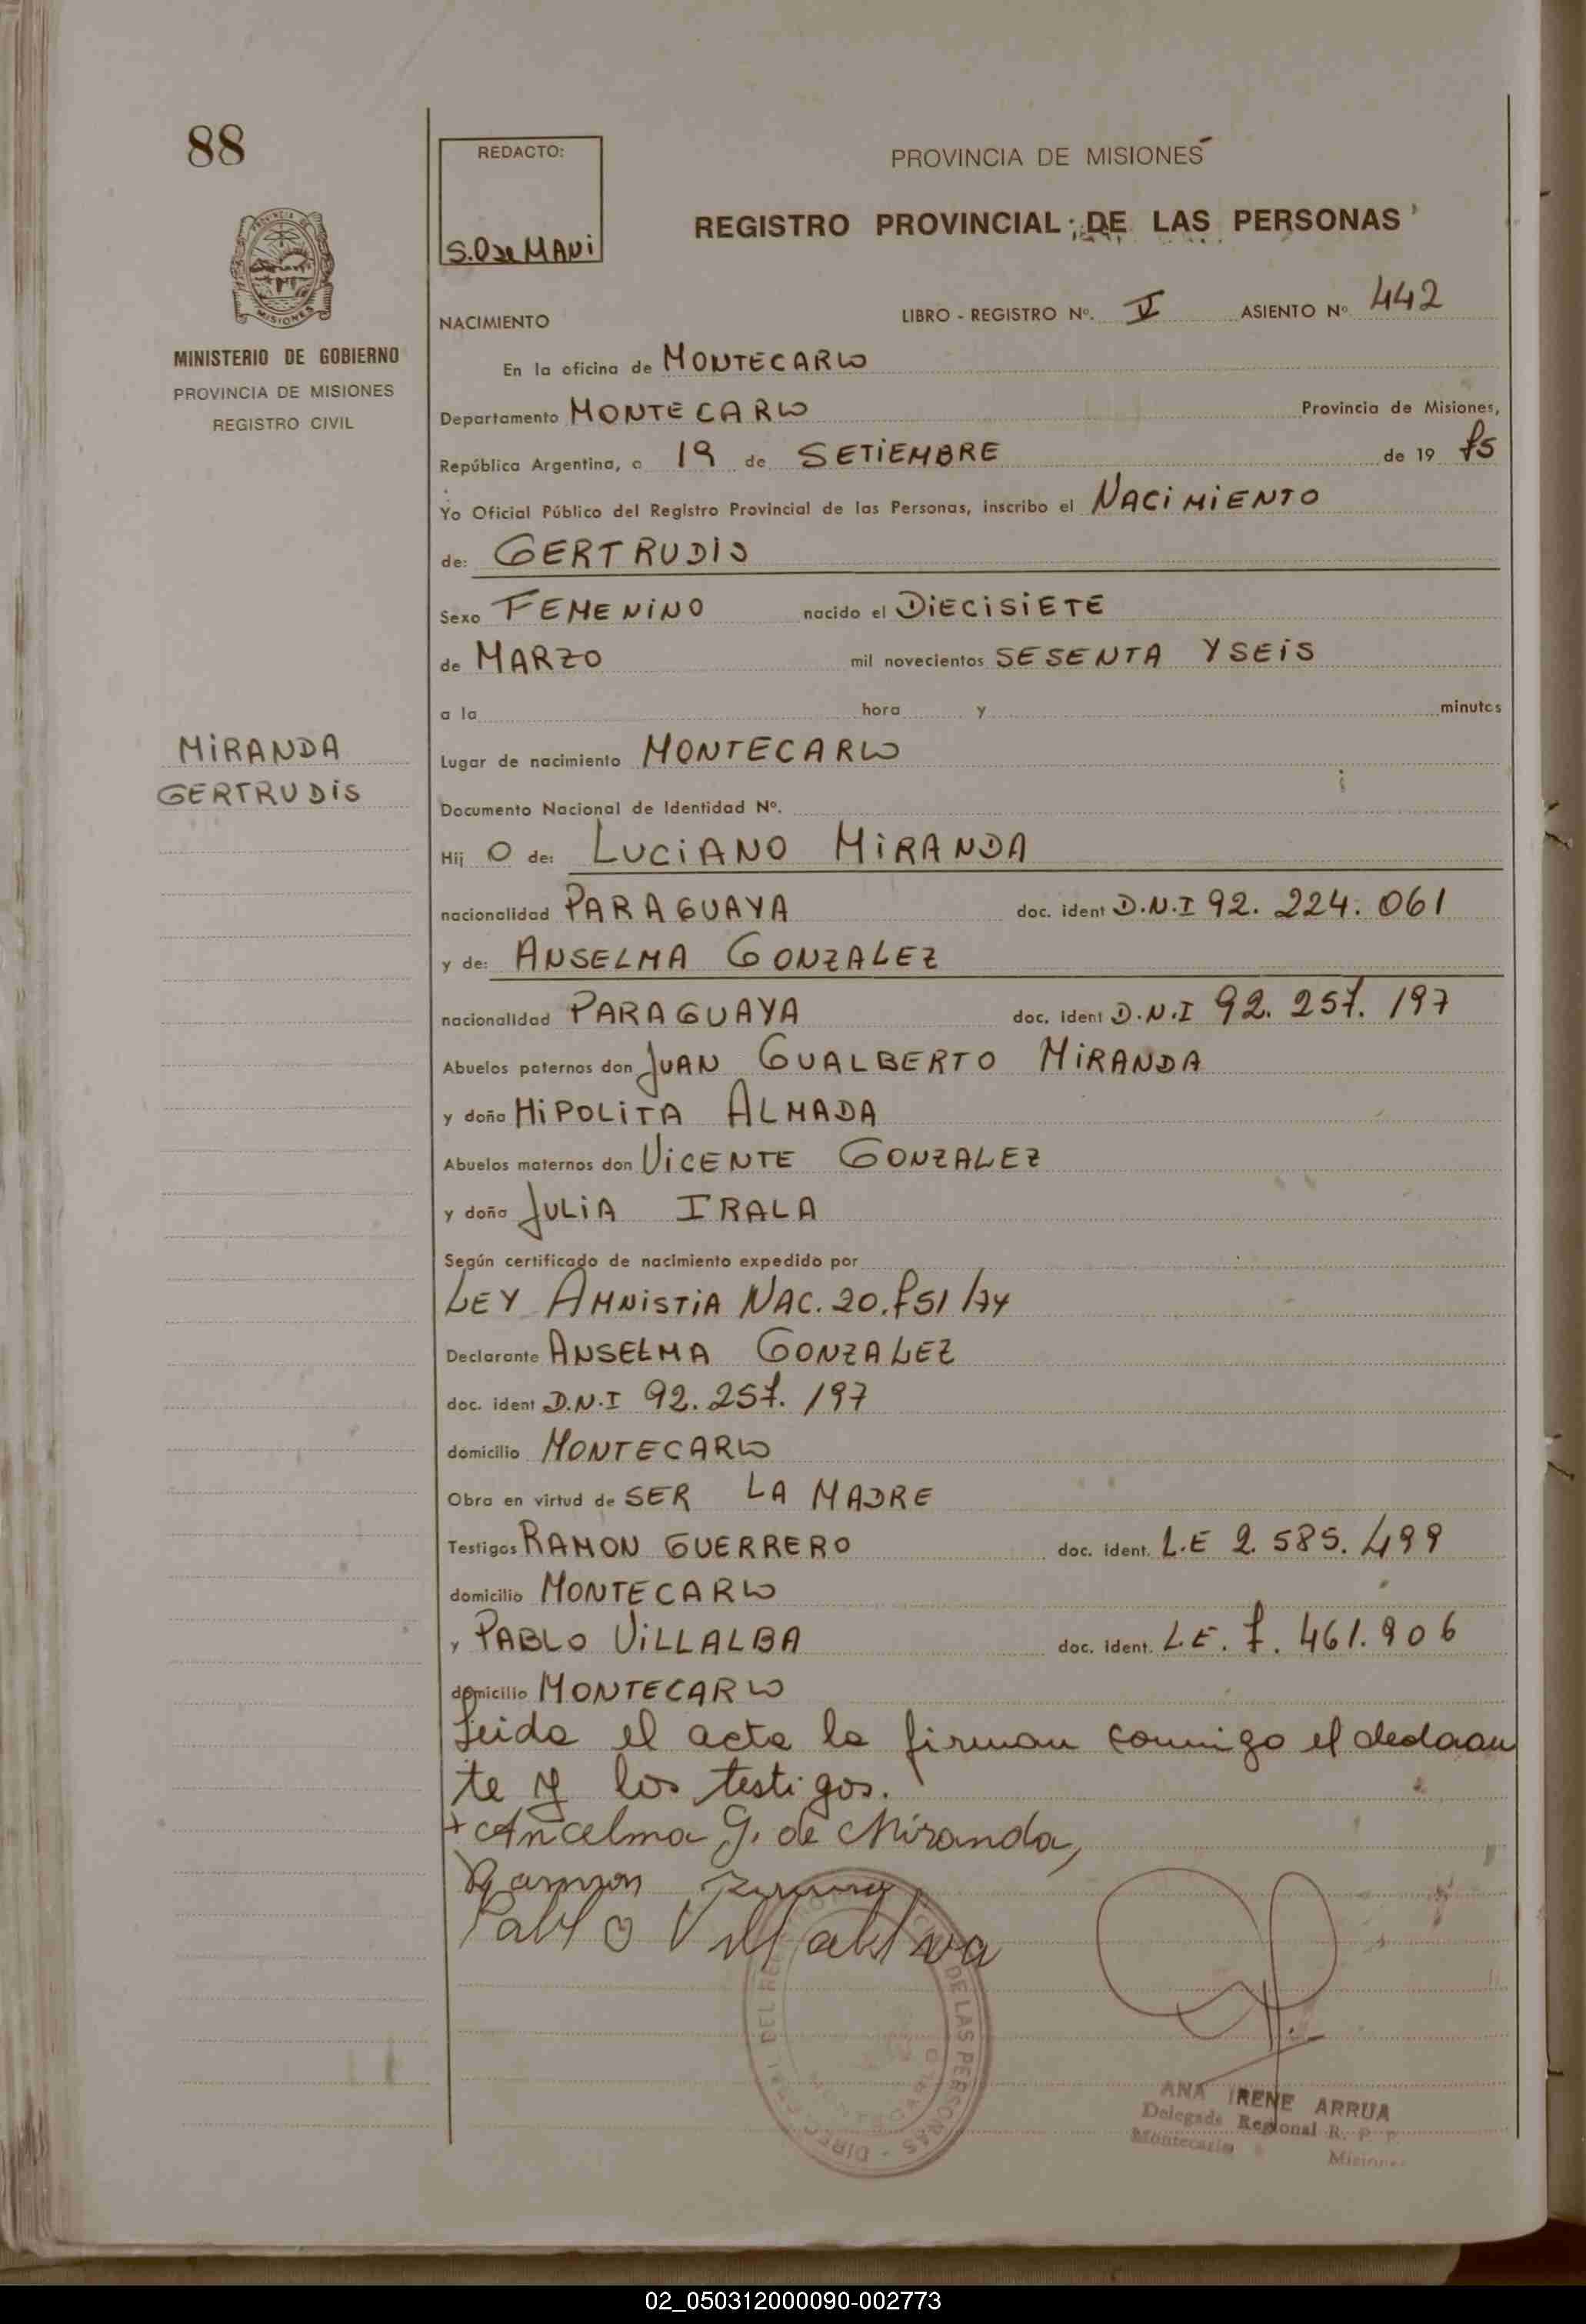 88
REDACTO:
S.O de MAUi
PROVINCIA DE MISIONES
REGISTRO PROVINCIAL DE LAS PERSONAS
MINISTERIO DE GOBIERNO
PROVINCIA DE MISIONES
REGISTRO CIVIL
NACIMIENTO LIBRO - REGISTRO Nº. V ASIENTO Nº 442
En la oficina de MONTECARLO
Departamento MONTECARLO Provincia de Misiones,
República Argentina, a 19 de SETIEMBRE de 19 75
Yo Oficial Público del Registro Provincial de las Personas, inscribo el NACIMIENTO
de: GERTRUDIS
Sexo FEMENINO nacido el DIECISIETE
de MARZO mil novecientos SESENTA Y SEIS
a la hora y minutos
MIRANDA
GERTRUDIS
Lugar de nacimiento MONTECARLO
Documento Nacional de Identidad Nº.
Hij O de: LUCIANO MIRANDA
nacionalidad PARAGUAYA doc. ident D.N.I 92. 224. 061
y de: ANSELMA GONZALEZ
nacionalidad PARAGUAYA doc. ident D.N.I 92. 257. 197
Abuelos paternos don JUAN GUALBERTO MIRANDA
y doña HIPOLITA ALMADA
Abuelos maternos don VICENTE GONZALEZ
y doña JULIA IRALA
Según certificado de nacimiento expedido por
LEY AMNISTIA NAC. 20.751/74
Declarante ANSELMA GONZALEZ
doc. ident D.N.I 92. 257. 197
domicilio MONTECARLO
Obra en virtud de SER LA MADRE
Testigos RAMON GUERRERO doc. ident. L.E 2. 585. 499
domicilio MONTECARLO
y PABLO VILLALBA doc. ident. L.E. 7. 461.906
domicilio MONTECARLO
Leida el acta la firman conmigo el declaran
te y los testigos.
+ Ancelma G. de Miranda,
Ramon
Pablo Villalva
DE LAS PERSONAS
MONTECARLO
ANA IRENE ARRUA
Delegada Regional R. P. P.
Montecarlo Misiones
02_050312000090-002773